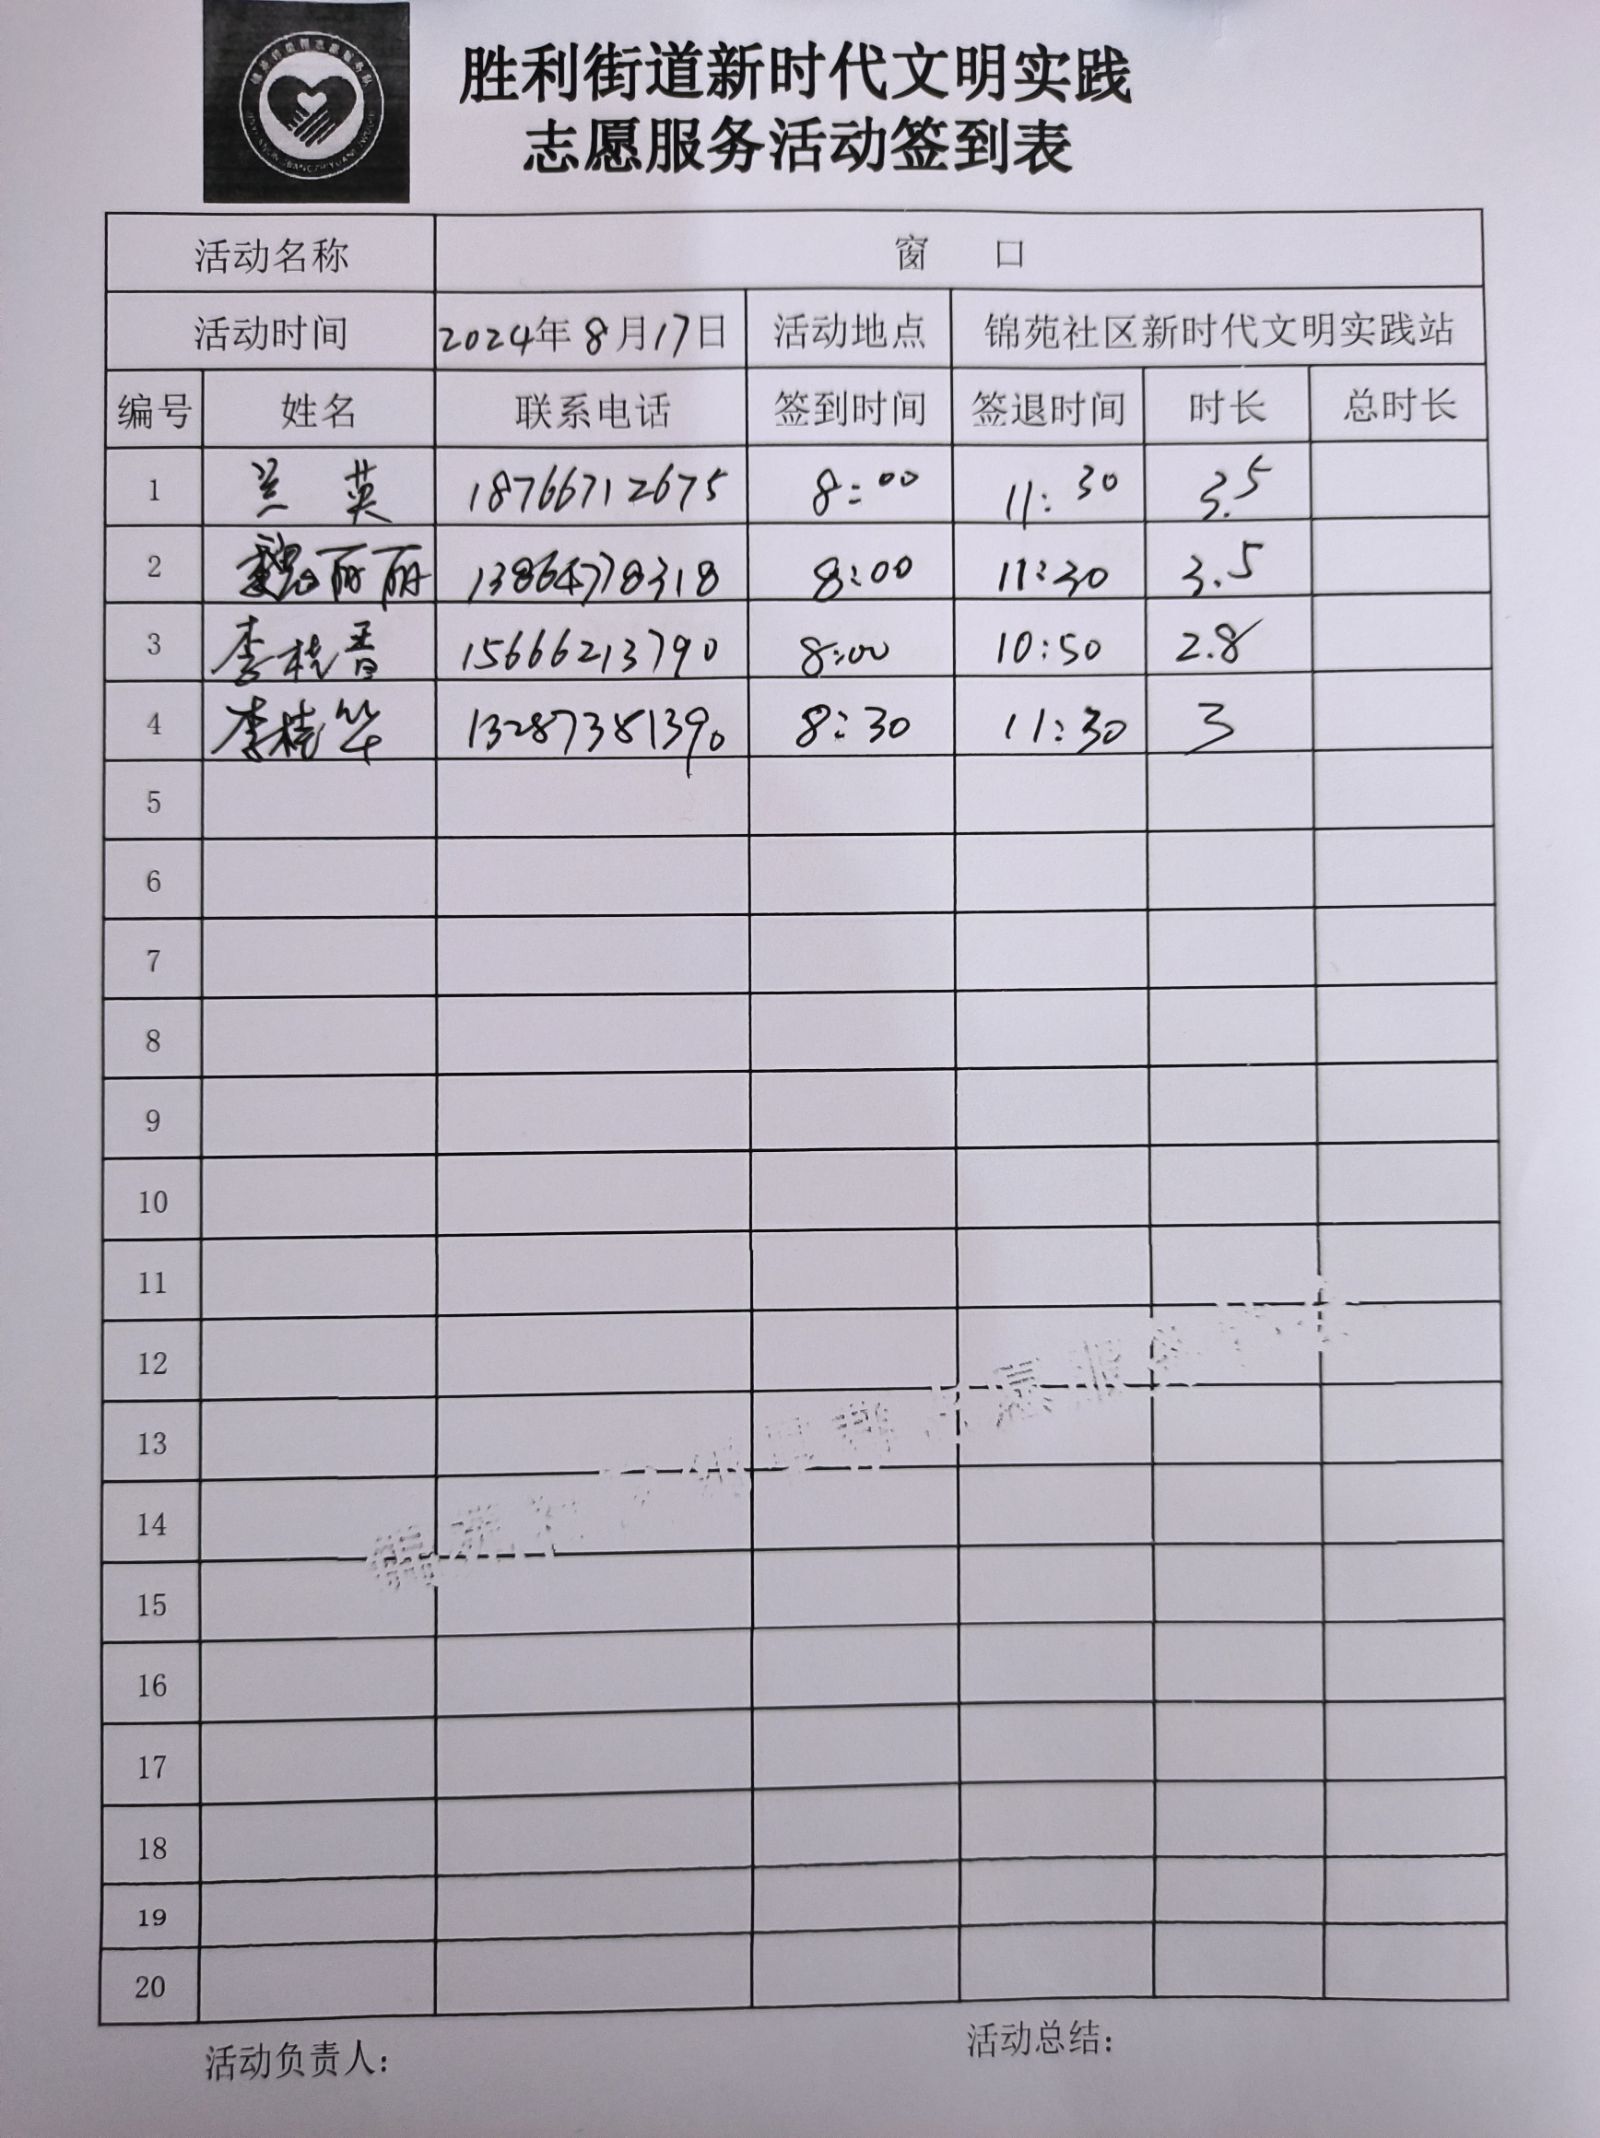 胜利街道新时代文明实践
志愿服务活动签到表
活动名称 窗 口
活动时间 2024年8月17日 活动地点 锦苑社区新时代文明实践站
编号 姓名 联系电话 签到时间 签退时间 时长 总时长
1 兰英 18766712675 8:00 11:30 3.5
2 魏丽丽 13864778318 8:00 11:30 3.5
3 李桂香 15666213790 8:00 10:50 2.8
4 李桂华 13287381390 8:30 11:30 3
5
6
7
8
9
10
11
12
13
14
15
16
17
18
19
20
活动负责人:
活动总结: